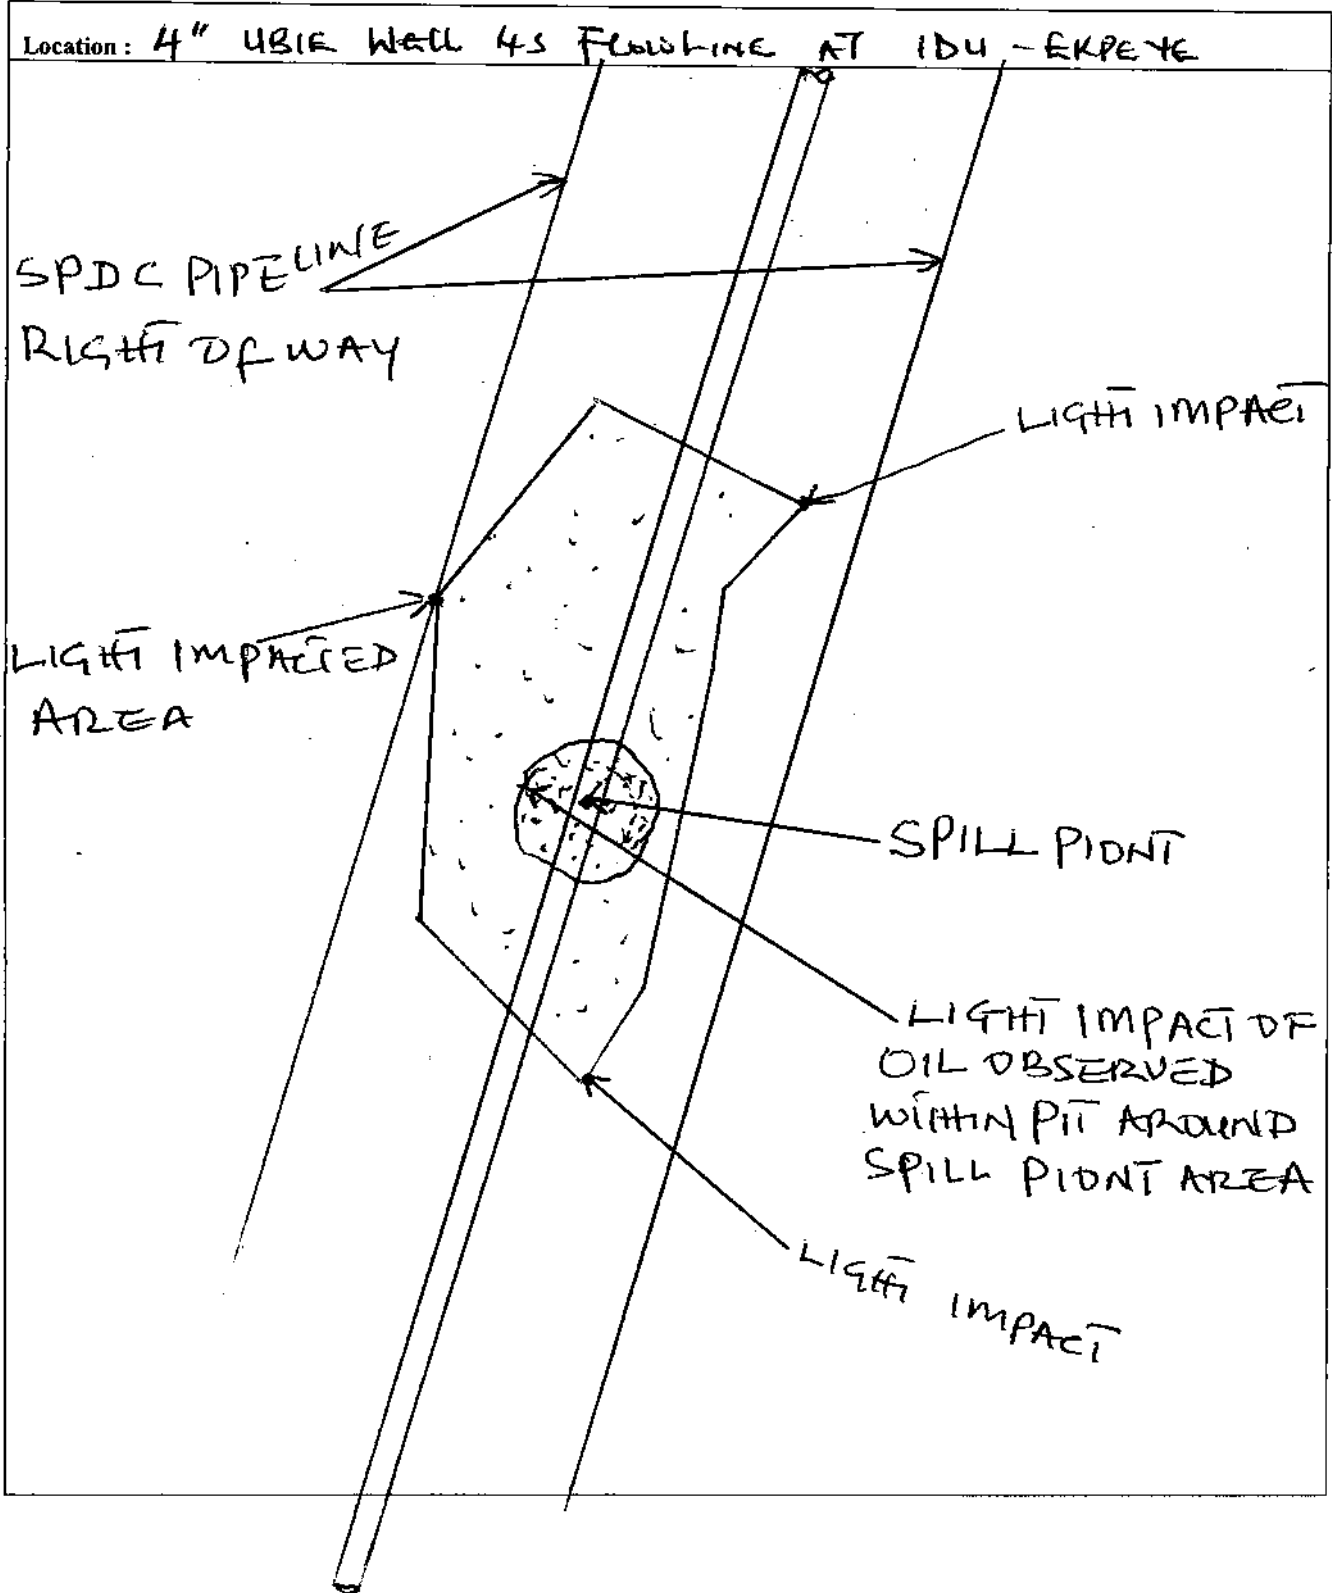 Location : 4" UBIE WELL 4S FLOWLINE AT IDU - EKPEYE
SPDC PIPELINE
RIGHT OF WAY
LIGHT IMPACT
LIGHT IMPACTED
AREA
SPILL PIONT
LIGHT IMPACT OF
OIL OBSERVED
WITHIN PIT AROUND
SPILL PIONT AREA
LIGHT IMPACT